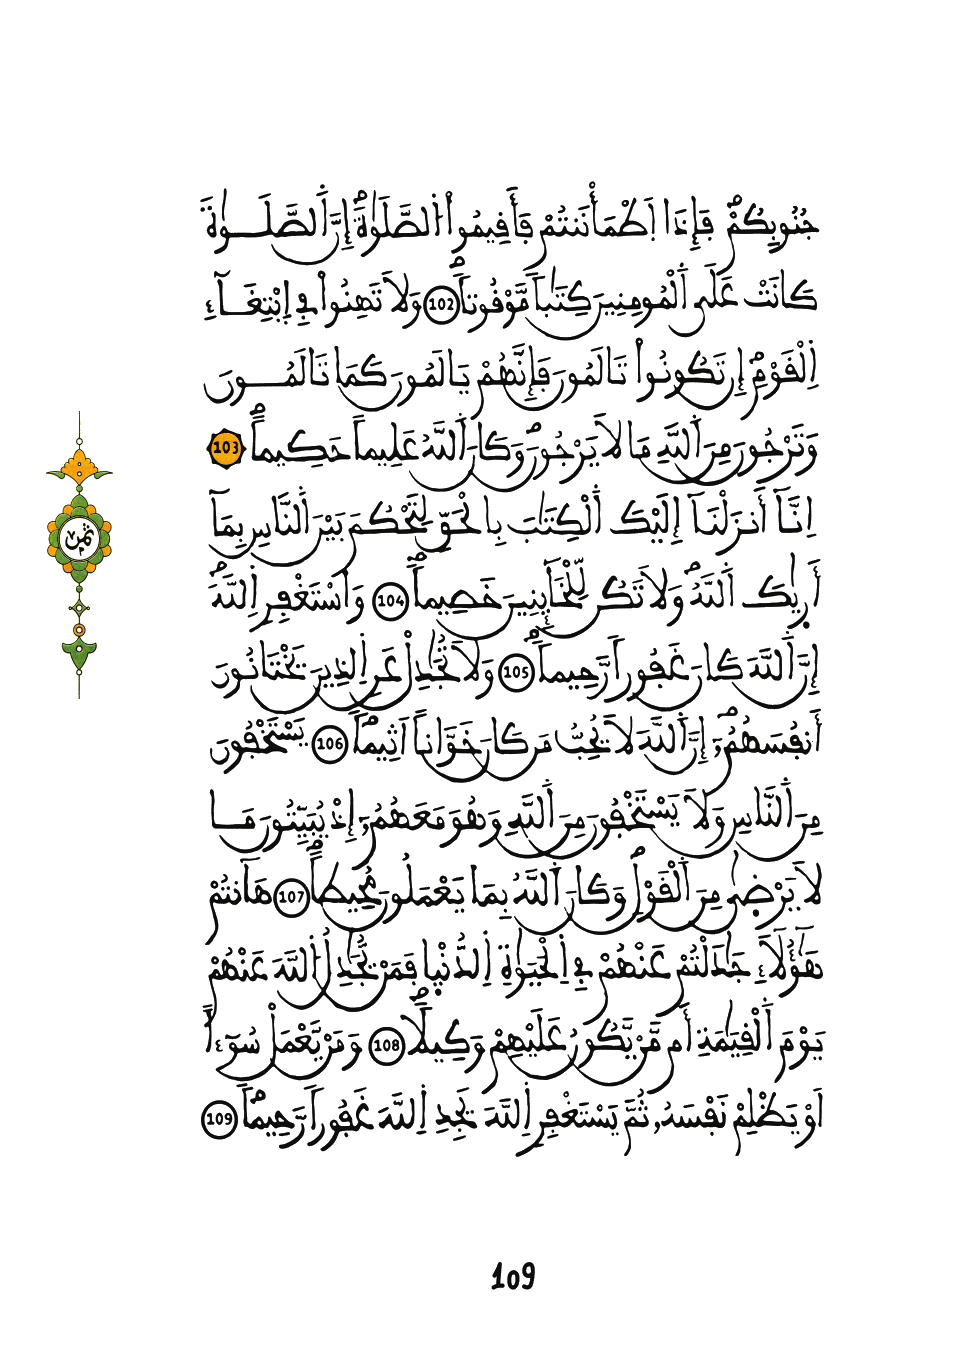 جُنُوبِكُمْ فَإِذَا اَطْمَأْنَنتُمْ فَأَقِيمُواْ الصَّلَوٰةَ إِنَّ الصَّلَوٰةَ
كَانَتْ عَلَى الْمُومِنِينَ كِتَٰباً مَّوْقُوتاً 102 وَلَا تَهِنُواْ فِے اِبْتِغَآءِ
اِ۬لْقَوْمِ إِن تَكُونُواْ تَالَمُونَ فَإِنَّهُمْ يَالَمُونَ كَمَا تَالَمُونَ
وَتَرْجُونَ مِنَ اَللَّهِ مَا لَا يَرْجُونَ وَكَانَ اَللَّهُ عَلِيماً حَكِيماً 103
اِنَّآ أَنزَلْنَآ إِلَيْكَ اَلْكِتَٰبَ بِالْحَقِّ لِتَحْكُمَ بَيْنَ اَلنَّاسِ بِمَآ
أَر۪يٰكَ اَللَّهُ وَلَا تَكُن لِّلْخَآئِنِينَ خَصِيماً 104 وَاسْتَغْفِرِ اِللَّهَ
إِنَّ اَللَّهَ كَانَ غَفُوراً رَّحِيماً 105 وَلَا تُجَٰدِلْ عَنِ اِلذِينَ يَخْتَانُونَ
أَنفُسَهُمُۥٓ إِنَّ اَللَّهَ لَا يُحِبُّ مَن كَانَ خَوَّاناً اَثِيماً 106 يَسْتَخْفُونَ
مِنَ اَلنَّاسِ وَلَا يَسْتَخْفُونَ مِنَ اَللَّهِ وَهُوَ مَعَهُمُۥٓ إِذْ يُبَيِّتُونَ مَا
لَا يَرْض۪يٰ مِنَ اَلْقَوْلِ وَكَانَ اَللَّهُ بِمَا يَعْمَلُونَ مُحِيطاً 107 هَآنتُمْ
هَٰٓؤُلَآءِ جَٰدَلْتُمْ عَنْهُمْ فِے اِلْحَيَوٰةِ اِلدُّنْي۪ا فَمَنْ يُّجَٰدِلُ اُللَّهَ عَنْهُمْ
يَوْمَ اَلْقِيَٰمَةِ أَم مَّنْ يَّكُونُ عَلَيْهِمْ وَكِيلاً 108 وَمَنْ يَّعْمَلْ سُوٓءاً
اَوْ يَظْلِمْ نَفْسَهُۥ ثُمَّ يَسْتَغْفِرِ اِللَّهَ يَجِدِ اِللَّهَ غَفُوراً رَّحِيماً 109
ثمن
109